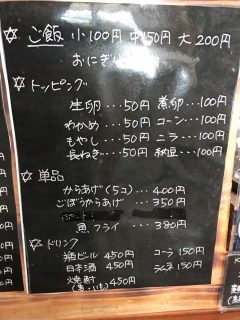 ☆ ご飯 小100円 中150円 大200円
おにぎり
☆ トッピング
生卵・・・50円 煮卵・・・100円
わかめ・・・50円 コーン・・・100円
もやし・・・50円 ニラ・・・100円
長ねぎ・・・50円 納豆・・・100円
☆ 単品
からあげ(5コ)・・・400円
ごぼうからあげ・・・350円
魚フライ・・・380円
☆ ドリンク
ビール 450円 コーラ 150円
日本酒 450円 ラムネ 150円
焼酎 450円